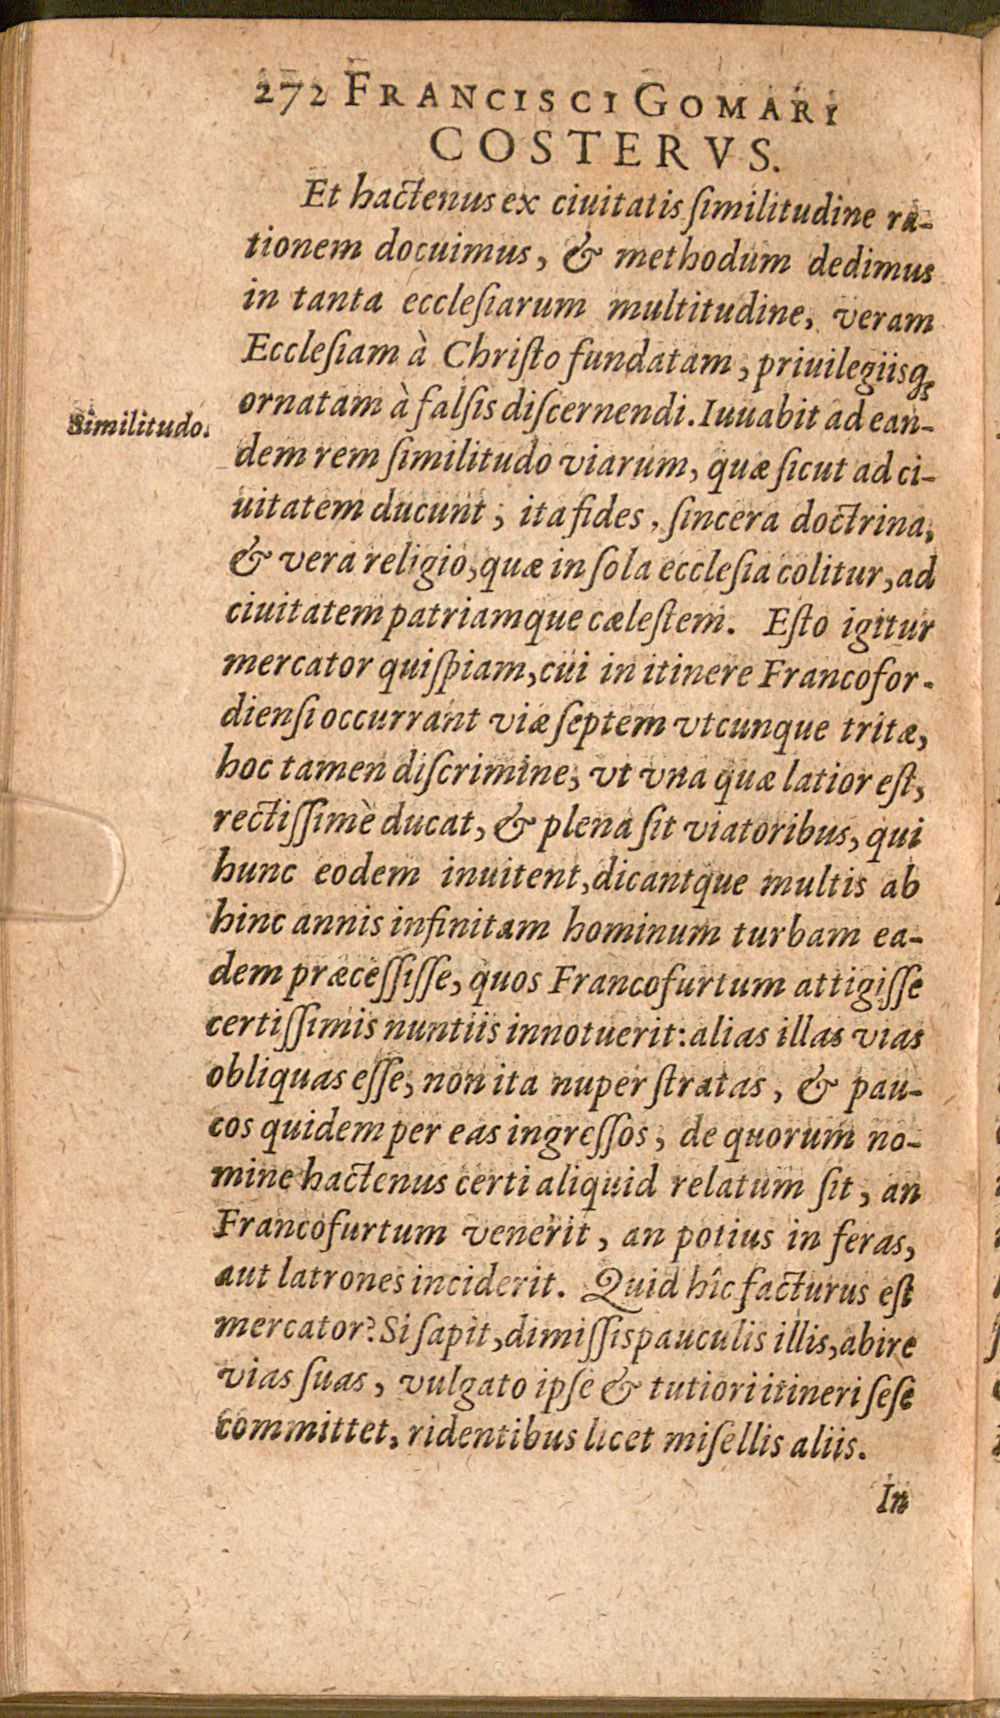 272 FRANCISCI GOMARI
COSTERVS.
Et hactenus ex ciuitatis ſimilitudine ra-
tionem docuimus, & methodum dedimus
in tanta eccleſiarum multitudine, veram
Eccleſiam à Chriſto fundatam, priuilegiisq́;
ornatam à falſis diſcernendi. Iuuabit ad ean-
Similitudo.
dem rem ſimilitudo viarum, quæ ſicut ad ci-
uitatem ducunt, ita fides, ſincera doctrina,
& vera religio, quæ in ſola eccleſia colitur, ad
ciuitatem patriamque cæleſtem. Eſto igitur
mercator quiſpiam, cui in itinere Francofor-
dienſi occurrant viæ ſeptem vtcunque tritæ,
hoc tamen diſcrimine, vt vna quæ latior eſt,
rectiſſimè ducat, & plena ſit viatoribus, qui
hunc eodem inuitent, dicantque multis ab
hinc annis infinitam hominum turbam ea-
dem præceſſiſſe, quos Francofurtum attigiſſe
certiſſimis nuntiis innotuerit: alias illas vias
obliquas eſſe, non ita nuper ſtratas, & pau-
cos quidem per eas ingreſſos, de quorum no-
mine hactenus certi aliquid relatum ſit, an
Francofurtum venerit, an potius in feras,
aut latrones inciderit. Quid hîc facturus eſt
mercator? Si ſapit, dimiſſis pauculis illis, abire
vias ſuas, vulgato ipſe & tutiori itineri ſeſe
committet, ridentibus licet miſellis aliis.
In